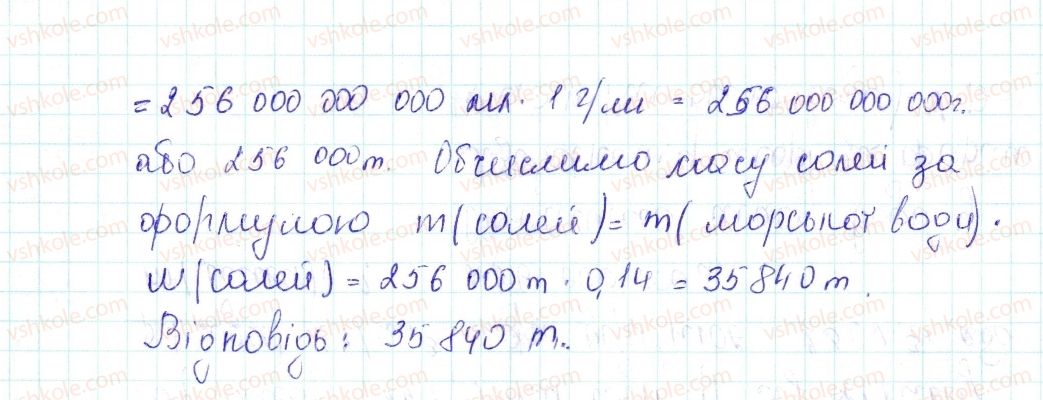 = 256 000 000 000 мл · 1 г/мл = 256 000 000 000г.
або 256 000т. Обчислимо масу солей за
формулою m(солей) = m(морської води) ·
W(солей) = 256 000 т · 0,14 = 35 840 т.
Відповідь: 35 840 т.